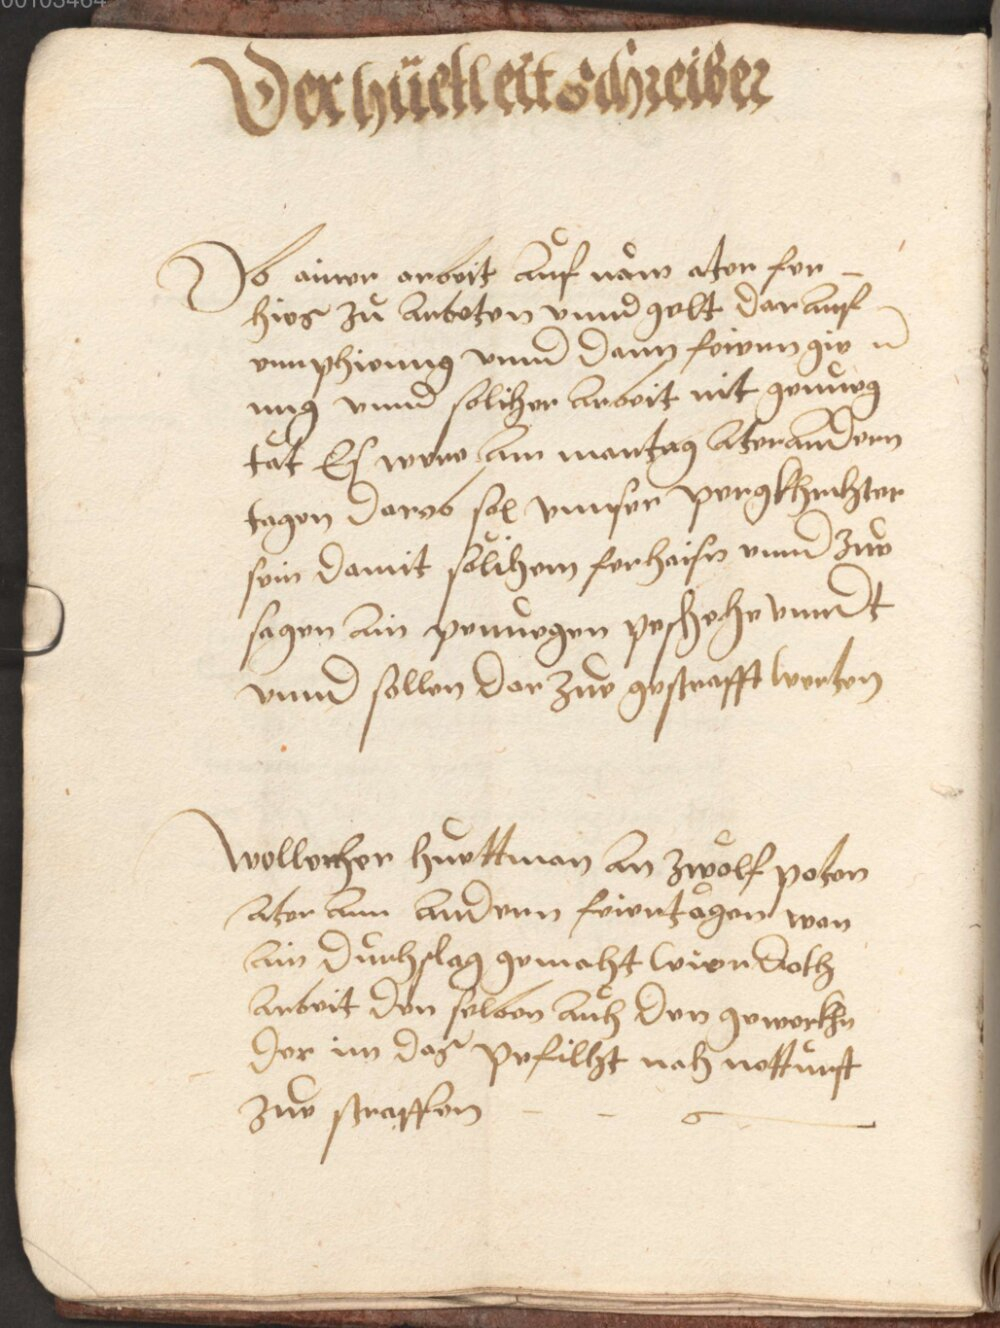 00103464
Der hüetleitt schreiber
Ob ainer arbeit auf näm ater fer-
hies zu arbeten vnnd gelt darauf
emphieng vnnd dann feiern gie
nng vnnd solicher arbeit nit genueg
tät Es were am montag ater andern
tagen darob sol vnnser pergkhrichter
sein damit solichem ferhaisn vnnd zue
sagen ain penuegen peschehe vnndt
vnnd sollen dar zue gestrafft werten
Wellicher huettman an zwölf poten
ater ann andern feiertägen wen
ain durchslag gemacht wier
arbeit den selben auch den gewerkhn
der im das pefilcht nach notturft
zue straffen